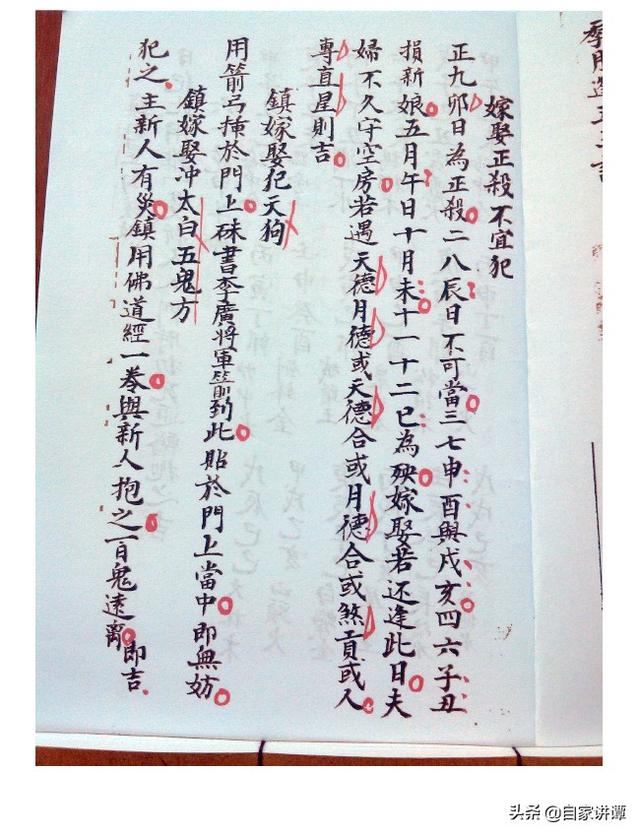 嫁娶正殺不宜犯
正九卯日為正殺二八辰日不可當三七申酉與戌亥四六子丑
損新娘五月午日十月未十一十二巳為殃嫁娶若还逢此日夫
婦不久守空房若遇天德月德或天德合或月德合或煞貢或人
專直星則吉
鎮嫁娶犯天狗
用箭弓掛於門上硃書李廣將軍箭到此貼於門上當中即無妨
鎮嫁娶冲太白五鬼方
犯之主新人有災鎮用佛道經一卷與新人抱之百鬼遠離即吉
头条 @自家讲谭